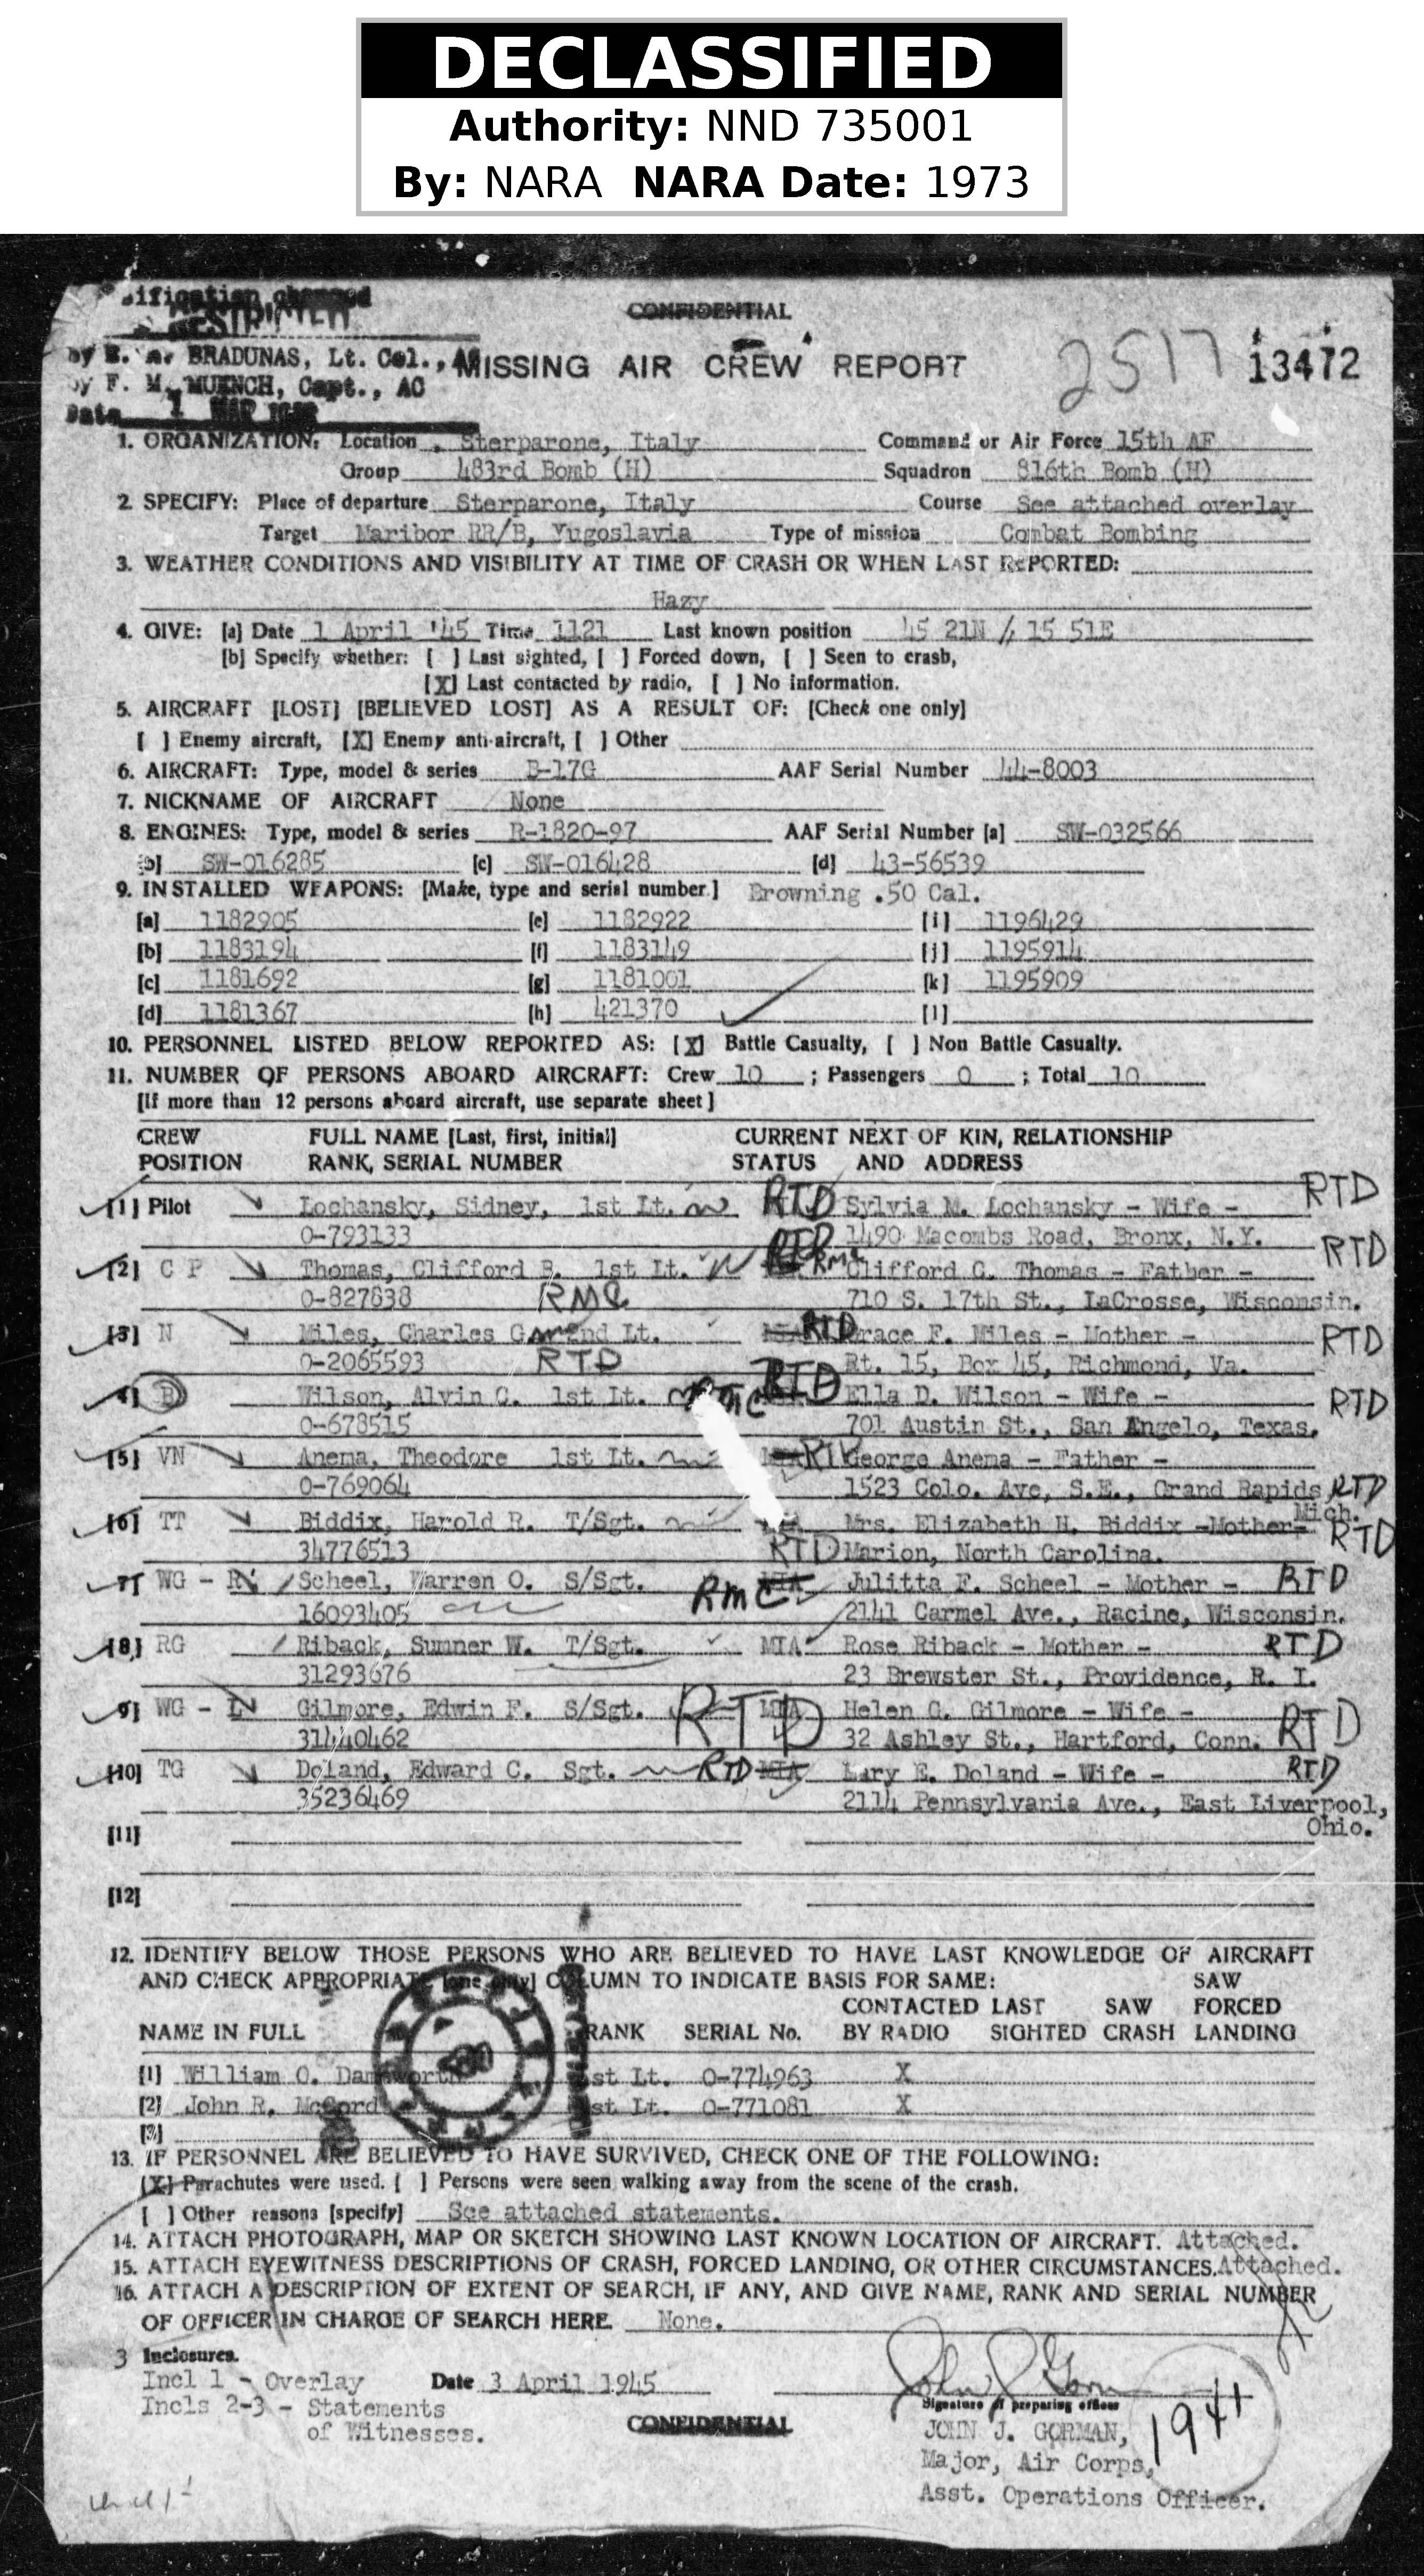 DECLASSIFIED
Authority: NND 735001
By: NARA NARA Date: 1973
CONFIDENTIAL
by BRADUNAS, Lt. Col.,
by F. M. MUENCH, Capt., AC
Date 1 MAR
MISSING AIR CREW REPORT 2517 13472
1. ORGANIZATION: Location Sterparone, Italy Command or Air Force 15th AF
Group 483rd Bomb (H) Squadron 816th Bomb (H)
2. SPECIFY: Place of departure Sterparone, Italy Course See attached overlay
Target Maribor RR/B, Yugoslavia Type of mission Combat Bombing
3. WEATHER CONDITIONS AND VISIBILITY AT TIME OF CRASH OR WHEN LAST REPORTED:
Hazy
4. GIVE: [a] Date 1 April '45 Time 1121 Last known position 45 21N / 15 51E
[b] Specify whether: [ ] Last sighted, [ ] Forced down, [ ] Seen to crash,
[X] Last contacted by radio, [ ] No information.
5. AIRCRAFT [LOST] [BELIEVED LOST] AS A RESULT OF: [Check one only]
[ ] Enemy aircraft, [X] Enemy anti-aircraft, [ ] Other
6. AIRCRAFT: Type, model & series B-17G AAF Serial Number 44-8003
7. NICKNAME OF AIRCRAFT None
8. ENGINES: Type, model & series R-1820-97 AAF Serial Number [a] SW-032566
[b] SW-016285 [c] SW-016428 [d] 43-56539
9. INSTALLED WEAPONS: [Make, type and serial number] Browning .50 Cal.
[a] 1182905 [e] 1182922 [i] 1196429
[b] 1183194 [f] 1183149 [j] 1195914
[c] 1181692 [g] 1181001 [k] 1195909
[d] 1181367 [h] 421370 [l]
10. PERSONNEL LISTED BELOW REPORTED AS: [X] Battle Casualty, [ ] Non Battle Casualty.
11. NUMBER OF PERSONS ABOARD AIRCRAFT: Crew 10 ; Passengers 0 ; Total 10
[If more than 12 persons aboard aircraft, use separate sheet]
CREW FULL NAME [Last, first, initial] CURRENT NEXT OF KIN, RELATIONSHIP
POSITION RANK, SERIAL NUMBER STATUS AND ADDRESS
[1] Pilot Lochansky, Sidney, 1st Lt. RTD Sylvia M. Lochansky - Wife - RTD
0-793133 1490 Macombs Road, Bronx, N.Y.
[2] C P Thomas, Clifford B. 1st Lt. RTD RMC Clifford C. Thomas - Father - RTD
0-827838 RMC 710 S. 17th St., LaCrosse, Wisconsin.
[3] N Miles, Charles G. 2nd Lt. RTD Grace F. Miles - Mother - RTD
0-2065593 RTD Rt. 15, Box 45, Richmond, Va.
[4] B Wilson, Alvin C. 1st Lt. RTD Ella D. Wilson - Wife - RTD
0-678515 701 Austin St., San Angelo, Texas.
[5] VN Anema, Theodore 1st Lt. George Anema - Father -
0-769064 1523 Colo. Ave, S.E., Grand Rapids, RTD
Mich.
[6] TT Biddix, Harold R. T/Sgt. Mrs. Elizabeth H. Biddix -Mother- RTD
34776513 RTD Marion, North Carolina.
[7] WG - R Scheel, Warren O. S/Sgt. RMC MIA Julitta F. Scheel - Mother - RTD
16093405 2141 Carmel Ave., Racine, Wisconsin.
[8] RG Riback, Sumner W. T/Sgt. MIA Rose Riback - Mother - RTD
31293676 23 Brewster St., Providence, R. I.
[9] WG - L Gilmore, Edwin F. S/Sgt. RTD MIA Helen G. Gilmore - Wife - RTD
31440462 32 Ashley St., Hartford, Conn.
[10] TG Doland, Edward C. Sgt. RTD MIA Lary E. Doland - Wife - RTD
35236469 2114 Pennsylvania Ave., East Liverpool,
Ohio.
[11]
[12]
12. IDENTIFY BELOW THOSE PERSONS WHO ARE BELIEVED TO HAVE LAST KNOWLEDGE OF AIRCRAFT
AND CHECK APPROPRIATE [one only] COLUMN TO INDICATE BASIS FOR SAME: SAW
CONTACTED LAST SAW FORCED
NAME IN FULL RANK SERIAL No. BY RADIO SIGHTED CRASH LANDING
[1] William O. 1st Lt. 0-774963 X
[2] John R. McCord 1st Lt. 0-771081 X
[3]
13. IF PERSONNEL ARE BELIEVED TO HAVE SURVIVED, CHECK ONE OF THE FOLLOWING:
[X] Parachutes were used. [ ] Persons were seen walking away from the scene of the crash.
[ ] Other reasons [specify] See attached statements.
14. ATTACH PHOTOGRAPH, MAP OR SKETCH SHOWING LAST KNOWN LOCATION OF AIRCRAFT. Attached.
15. ATTACH EYEWITNESS DESCRIPTIONS OF CRASH, FORCED LANDING, OR OTHER CIRCUMSTANCES. Attached.
16. ATTACH A DESCRIPTION OF EXTENT OF SEARCH, IF ANY, AND GIVE NAME, RANK AND SERIAL NUMBER
OF OFFICER IN CHARGE OF SEARCH HERE. None.
3 Inclosures.
Incl 1 - Overlay Date 3 April 1945
Incls 2-3 - Statements
of Witnesses.
CONFIDENTIAL
Signature of preparing officer
JOHN J. GORMAN,
Major, Air Corps,
Asst. Operations Officer.